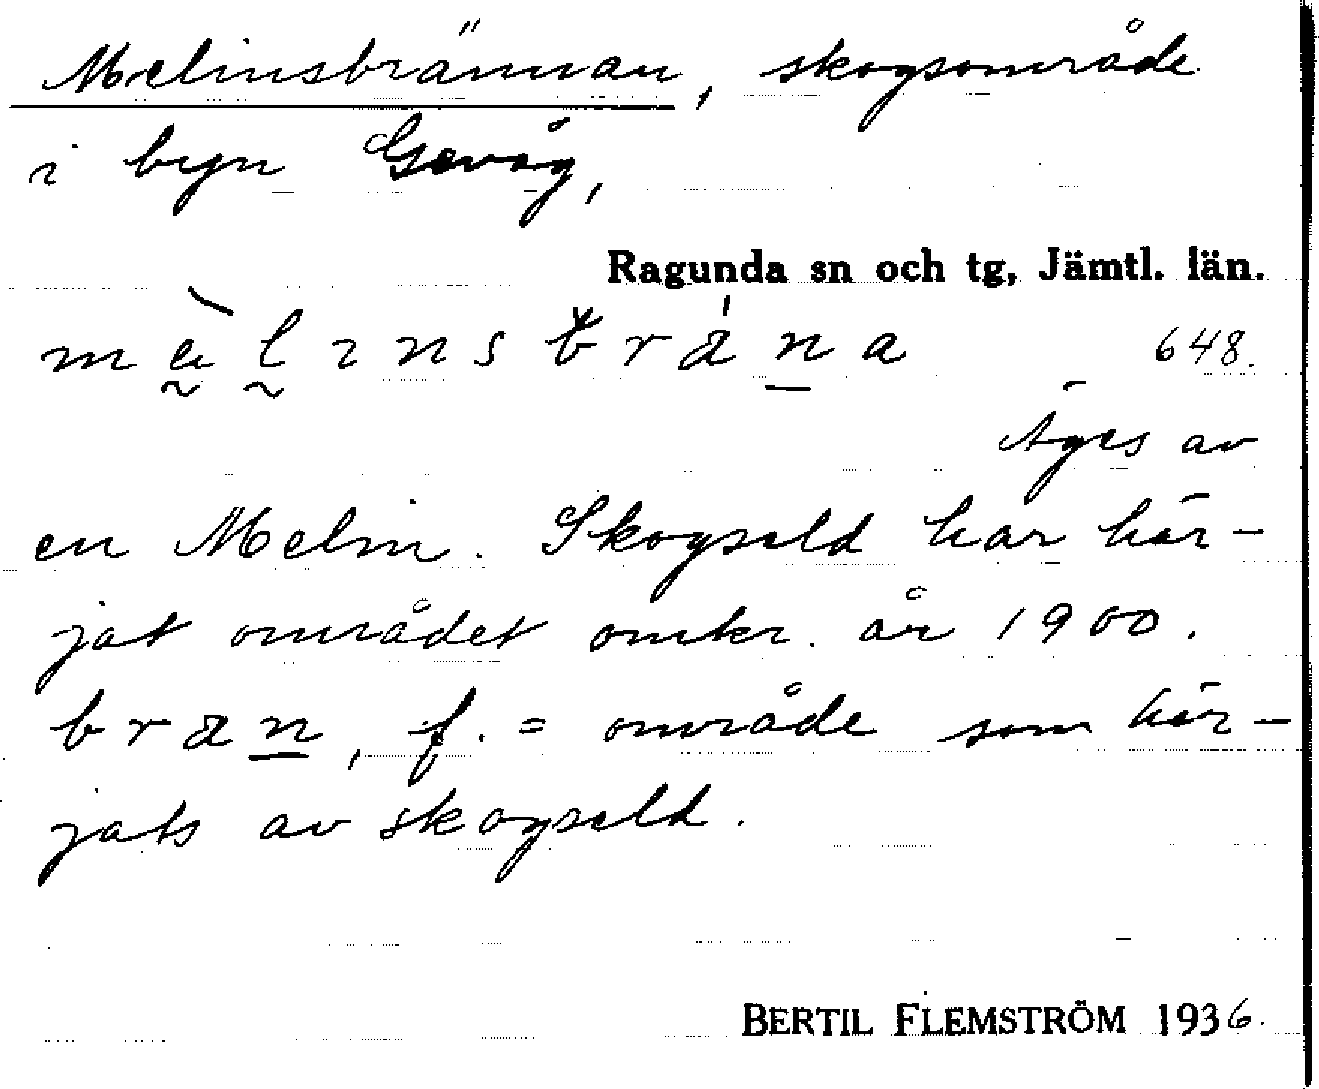 Melinsbrännan, skogsområde
i byn Gevåg,
Ragunda sn och tg, Jämtl. län.
648.
Äges av
en Melin. Skogseld har här-
jat området omkr. år 1900.
bran, f. = område som här-
jats av skogseld.
BERTIL FLEMSTRÖM 1936.